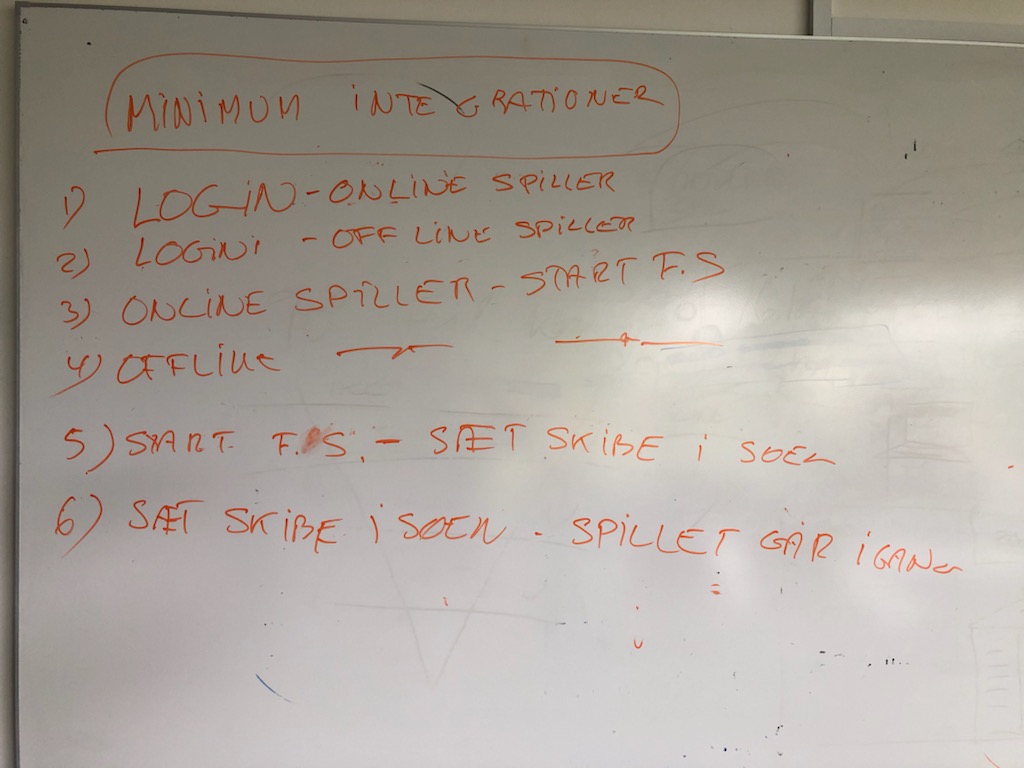 MINIMUM INTEGRATIONER
1) LOGIN - ONLINE SPILLER
2) LOGINI - OFF LINE SPILLER
3) ONLINE SPILLER - START F.S
4) OFFLINE —〃— —〃—
5) START F.S. - SÆT SKIBE I SOEN
6) SÆT SKIBE I SOEN - SPILLET GÅR IGANG